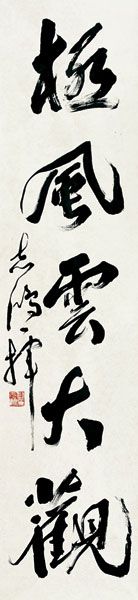 極風雲大觀
志鴻揮